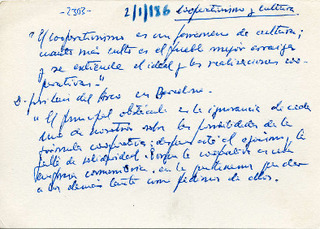 -2308-
2/1/186 Cooperativismo y cultura
"El cooperativismo es un fenomeno de cultura;
cuanto más culto es el pueblo mejor arraiga
y se extiende el ideal y las realizaciones coo-
perativas."
en Barcelona
"El principal obstáculo es la ignorancia de cada
uno de nosotros sobre las posibilidades de la
fórmula cooperativa; después está el egoísmo, la
falta de solidaridad. Porque la cooperativa es una
empresa comunitaria, en la que
a los demás tanto como pedimos de ellos.